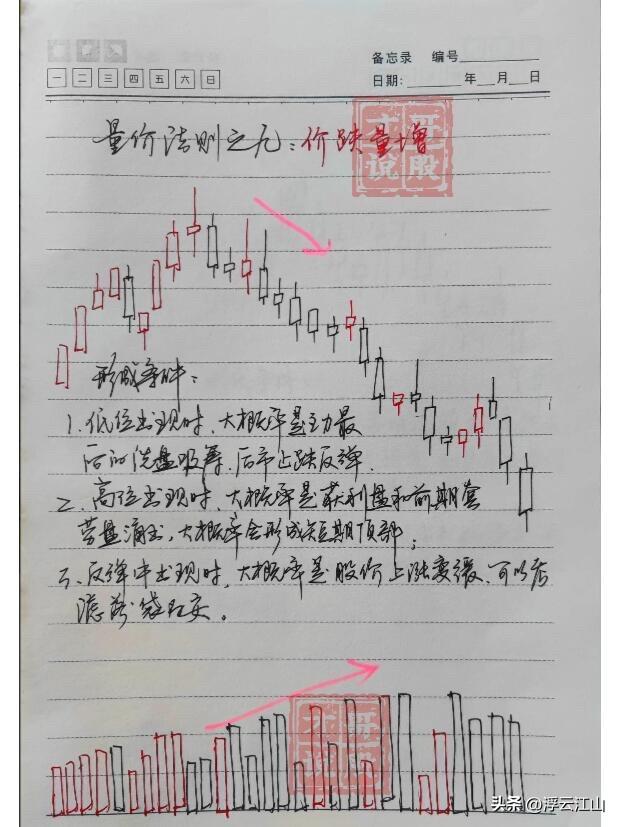 备忘录 编号
一 二 三 四 五 六 日
日期： 年 月 日
量价法则之九：价跌量增
形成条件：
1、低位出现时，大概率是主力最
后的洗盘吸筹，后市止跌反弹。
2、高位出现时，大概率是获利盘和前期套
牢盘涌出，大概率会形成短期顶部；
3、反弹中出现时，大概率是股价上涨变缓，可以考
虑落袋为安。
头条@浮云江山